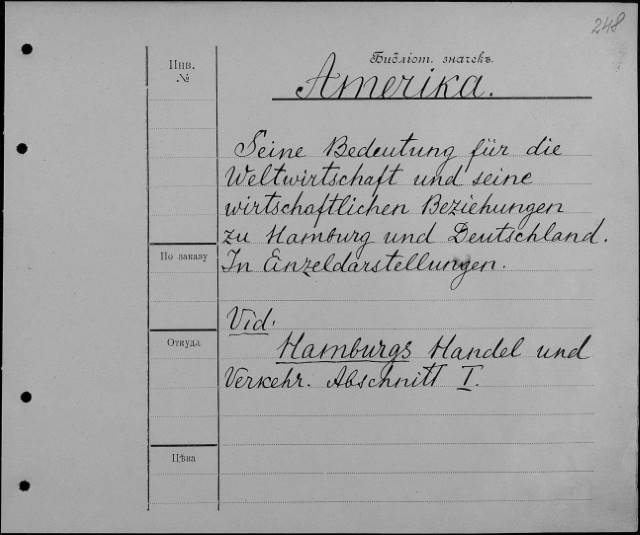 248
Инв.
№
Библіот. значекъ.
Amerika.
Seine Bedeutung für die
Weltwirtschaft und seine
wirtschaftlichen Beziehungen
zu Hamburg und Deutschland.
По заказу
In Einzeldarstellungen.
Vid.
Откуда
Hamburgs Handel und
Verkehr. Abschnitt I.
Цѣна